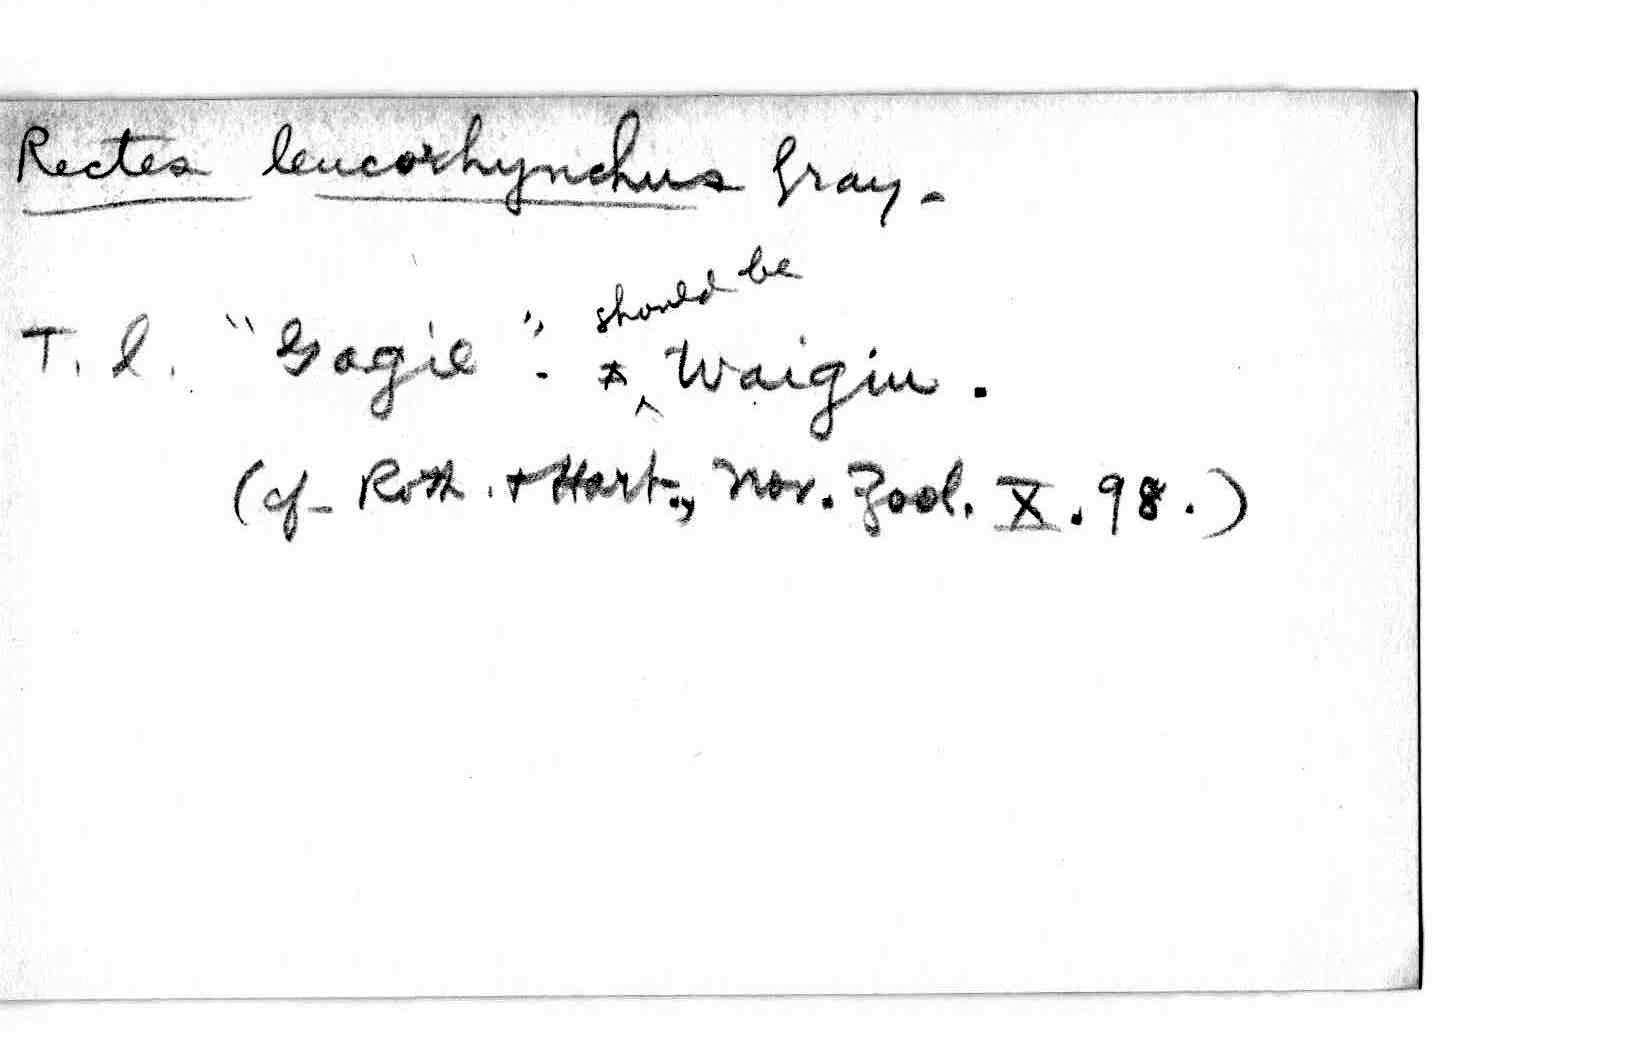 Rectes leucorhynchus Gray.
T. l. "Gagie". should be Waigiu.
(cf. Roth. + Hart., Nov. Zool. X. 98.)